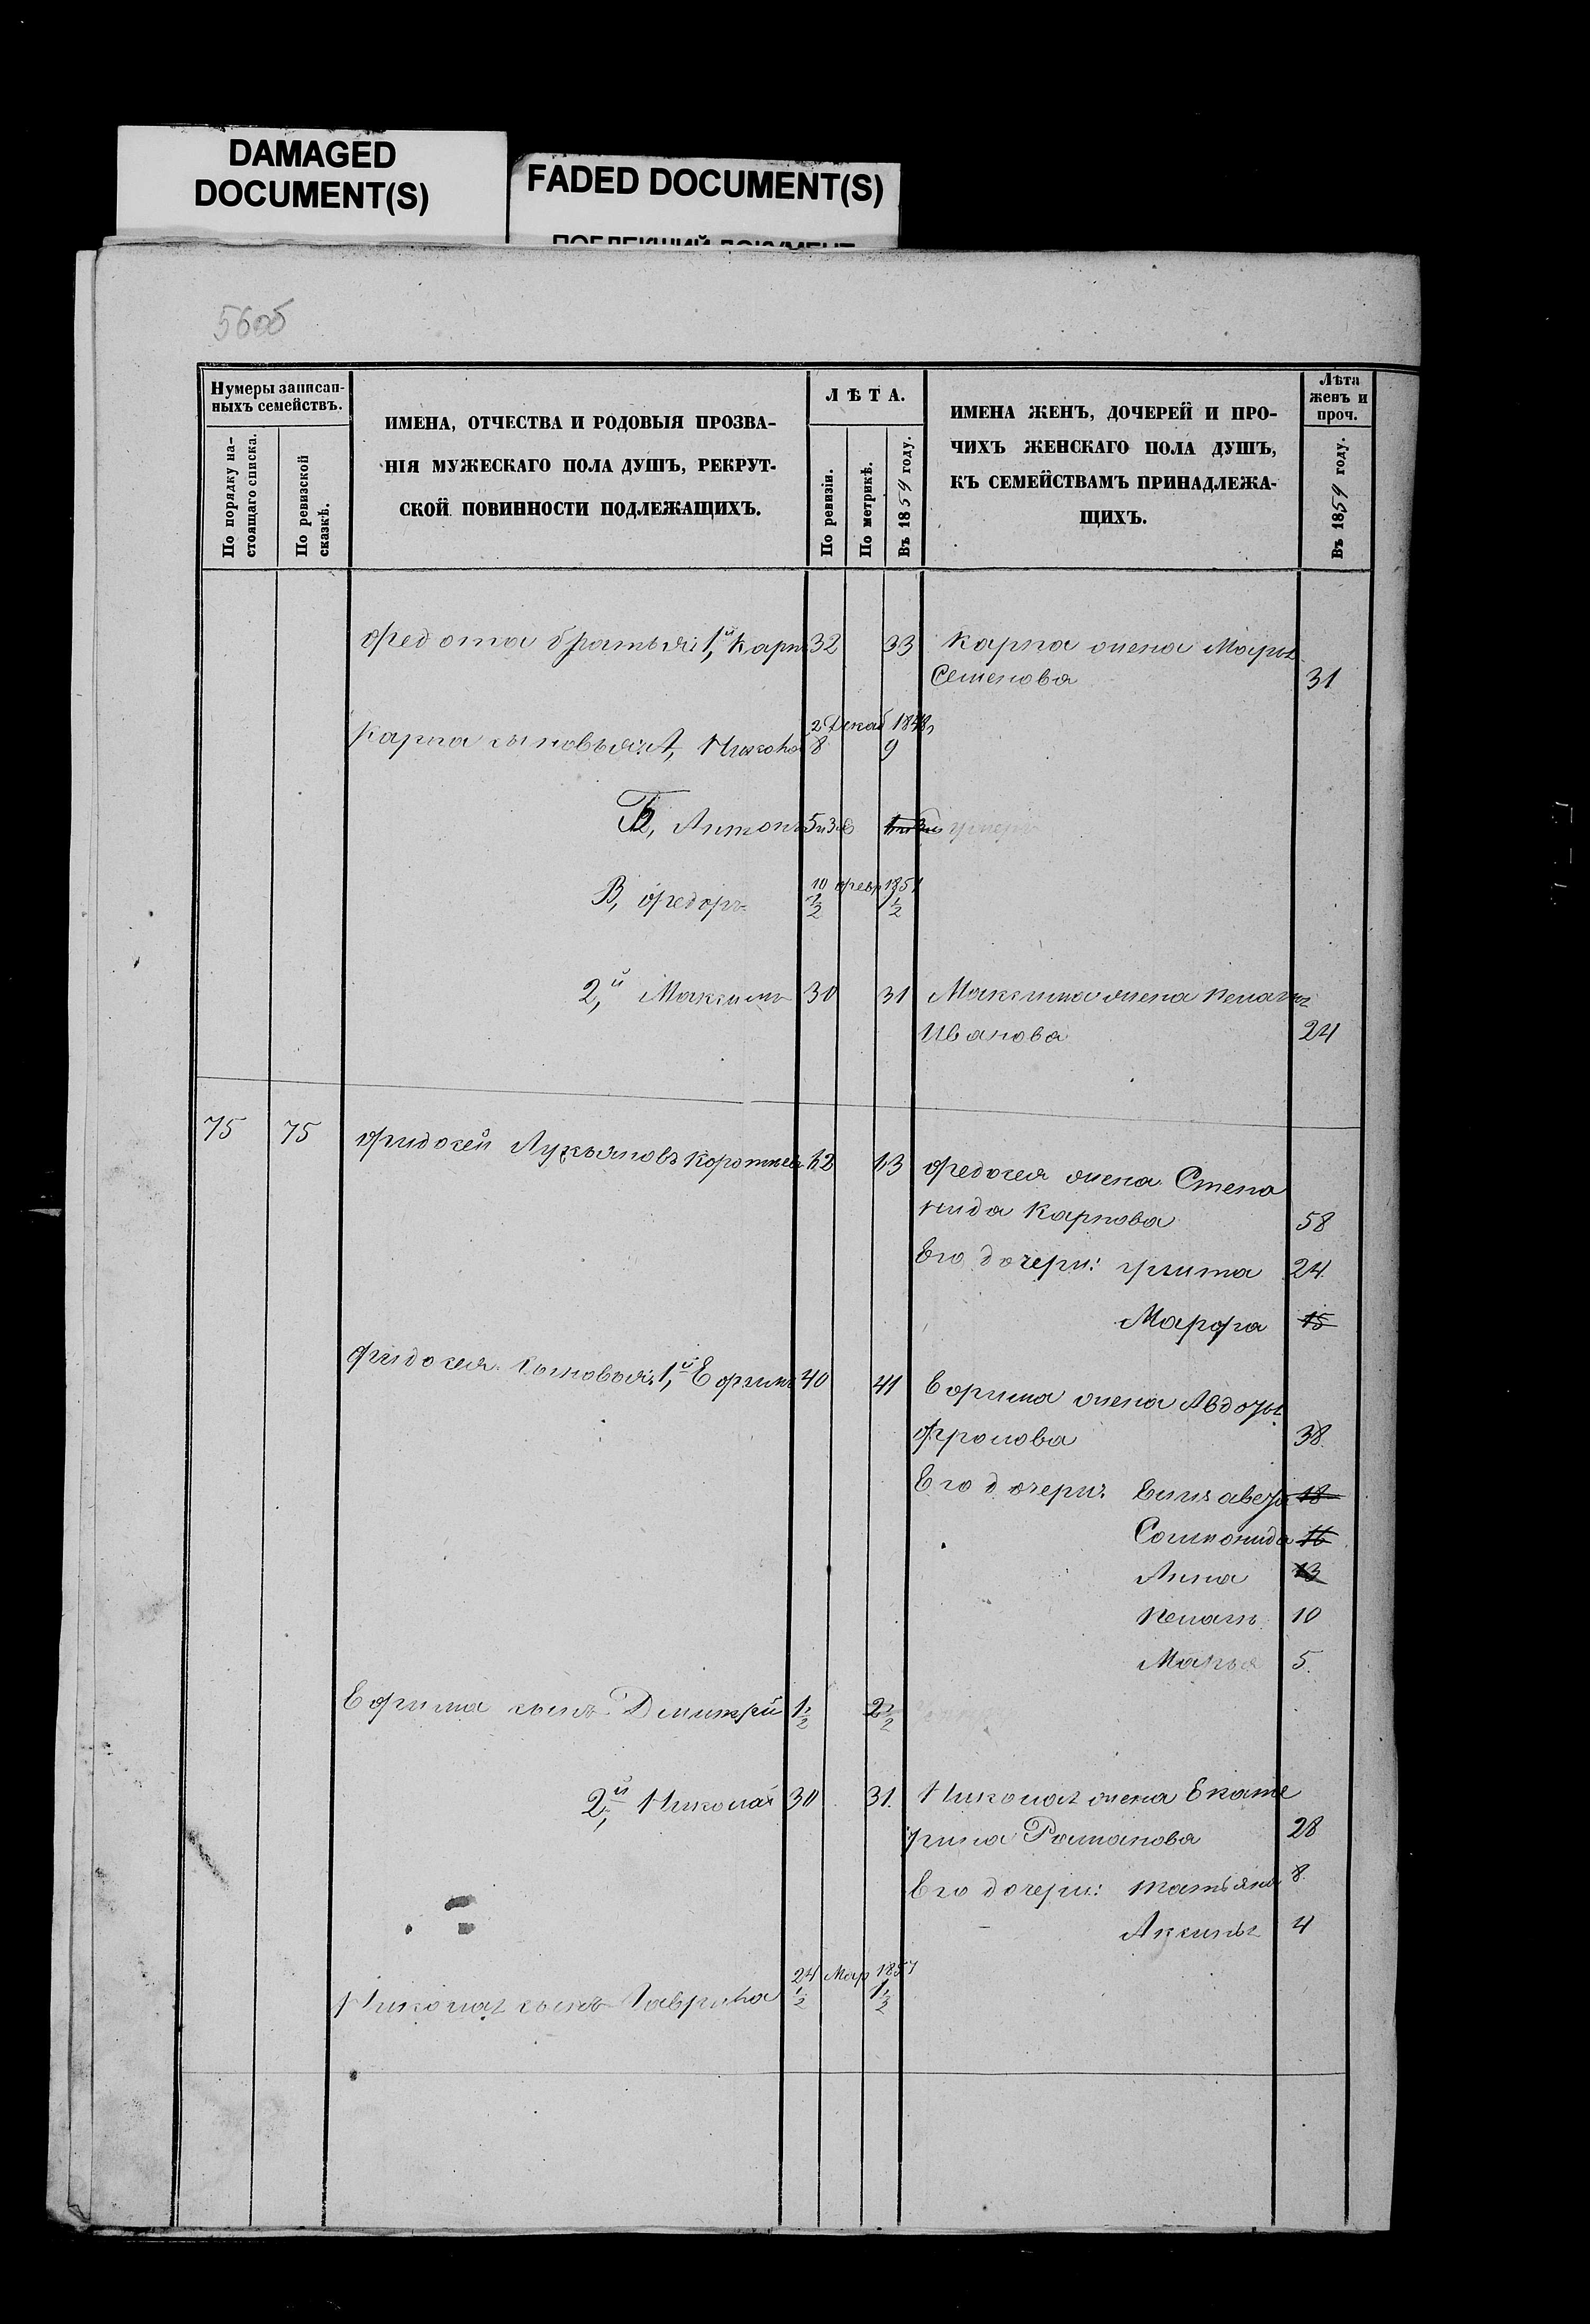 DAMAGED
DOCUMENT(S)
FADED DOCUMENT(S)
ПОБЛЕКШИЙ ДОКУМЕНТ
56об
Нумеры записан-
ныхъ семействъ.
По порядку на-
стоящаго списка.
По ревизской
сказкѣ.
ИМЕНА, ОТЧЕСТВА И РОДОВЫЯ ПРОЗВА-
НІЯ МУЖЕСКАГО ПОЛА ДУШЪ, РЕКРУТ-
СКОЙ ПОВИННОСТИ ПОДЛЕЖАЩИХЪ.
ЛѢТА.
По ревизіи.
По метрикѣ.
Въ 1859 году.
ИМЕНА ЖЕНЪ, ДОЧЕРЕЙ И ПРО-
ЧИХЪ ЖЕНСКАГО ПОЛА ДУШЪ,
КЪ СЕМЕЙСТВАМЪ ПРИНАДЛЕЖА-
ЩИХЪ.
Лѣта
женъ и
проч.
Въ 1859 году.
Федота братья: 1й, Карп 32 33 Карпа жена Марья
Семенова 31
2 Декаб 1848
Карпа сыновья: А, Никола 8 9
Б, Антонъ умеръ
10 Февр 1857
В, Федоръ 1/2 1 1/2
2,й Максимъ 30 31 Максима жена Пелагея
Иванова 24
75 75 Фидосей Лукьяновъ 13 Федосея жена Степа
нида Карпова 58
Его дочери: 24
Марфа 15
Фидосея сыновья: 1,й Ефимъ 40 41 Ефима жена Авдотья
Фролова 38
Его дочери: Елизавета 18
16
Анна 13
Пелагея 10
Марья 5.
Ефима сынъ Дмитрий 1 1/2 2 1/2
2,й Николай 30 31. Николая жена Екате
рина Романова 28
Его дочери: Татьяна 8.
Аксинья 4
24 Мар 1857
Николая сынъ Гаврила 1/2 1 1/2